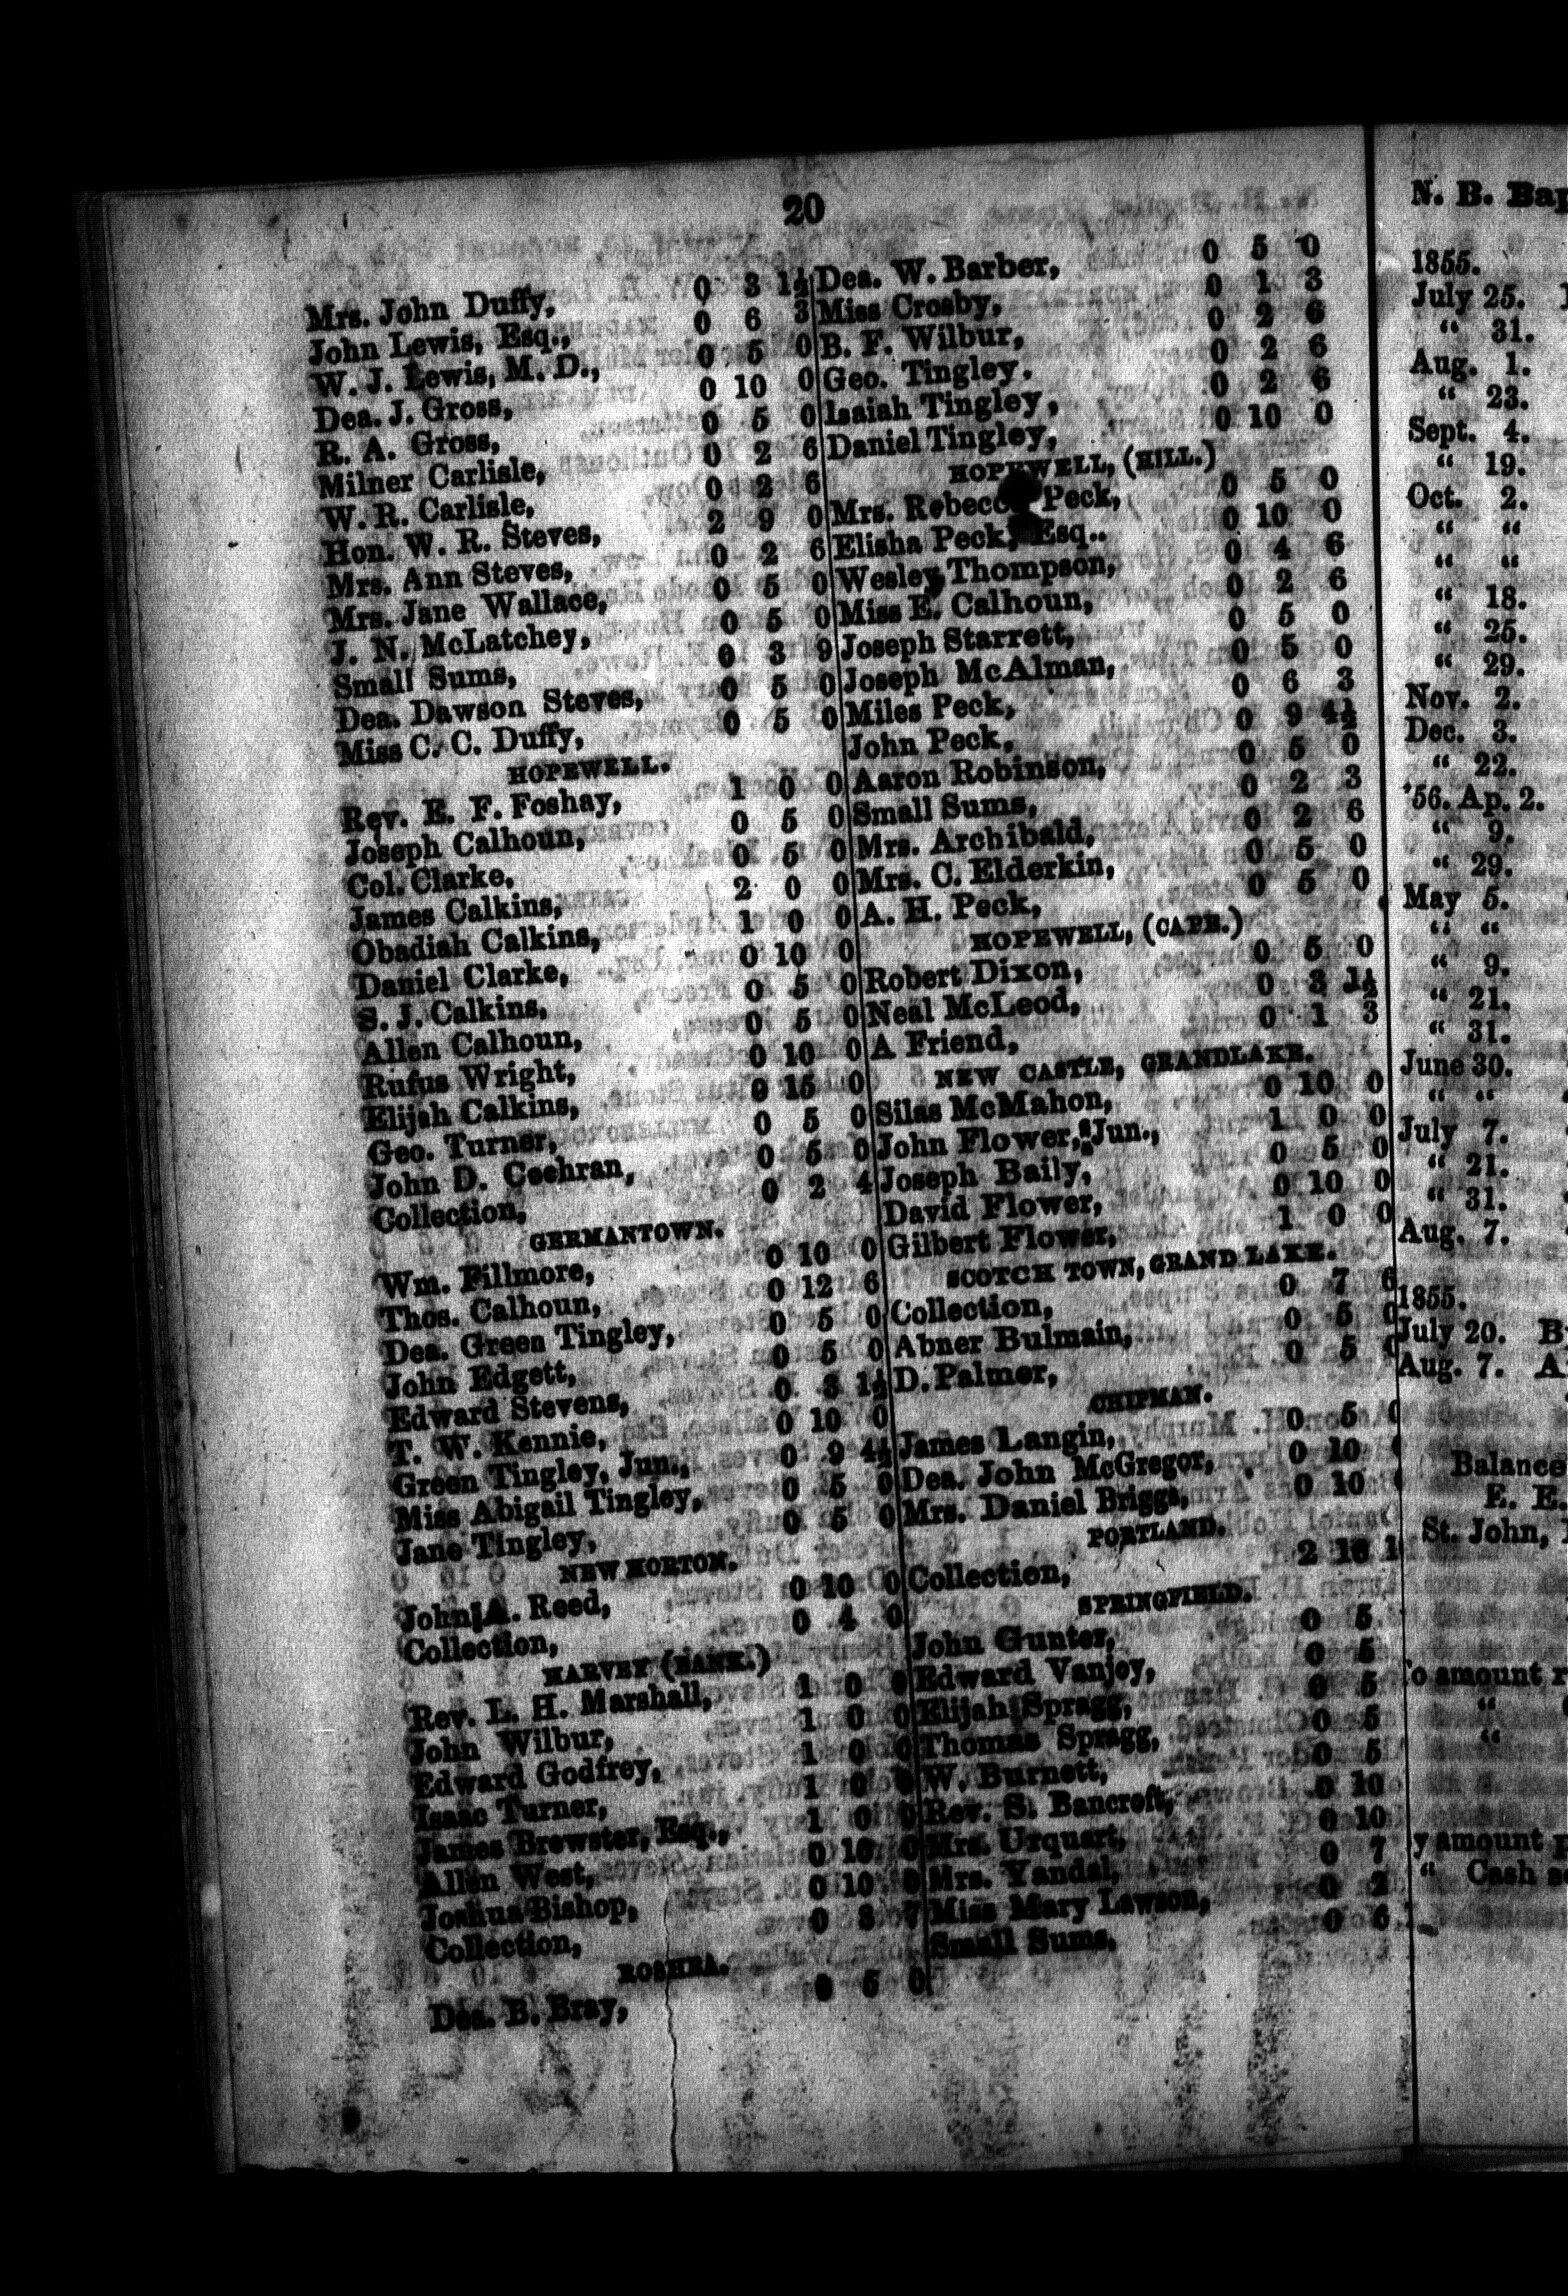 20
Mrs. John Duffy, 0 3 1½
John Lewis, Esq., 0 6 3
W. J. Lewis, M. D., 0 5 0
Dea. J. Gross, 0 10 0
R. A. Gross, 0 5 0
Milner Carlisle, 0 2 6
W. R. Carlisle, 0 2 6
Hon. W. R. Steves, 2 9 0
Mrs. Ann Steves, 0 2 6
Mrs. Jane Wallace, 0 5 0
J. N. McLatchey, 0 5 0
Small Sums, 0 3 9
Dea. Dawson Steves, 0 5 0
Miss C. C. Duffy, 0 5 0
HOPEWELL.
Rev. E. F. Foshay, 1 0 0
Joseph Calhoun, 0 5 0
Col. Clarke, 0 5 0
James Calkins, 2 0 0
Obadiah Calkins, 1 0 0
Daniel Clarke, 0 10 0
S. J. Calkins, 0 5 0
Allen Calhoun, 0 5 0
Rufus Wright, 0 10 0
Elijah Calkins, 0 15 0
Geo. Turner, 0 5 0
John D. Cochran, 0 5 0
Collection, 0 2 4
GERMANTOWN.
Wm. Fillmore, 0 10 0
Thos. Calhoun, 0 12 6
Dea. Green Tingley, 0 5 0
John Edgett, 0 5 0
Edward Stevens, 0 3 1½
T. W. Kennie, 0 10 0
Green Tingley, Jun., 0 9 4½
Miss Abigail Tingley, 0 5 0
Jane Tingley, 0 5 0
NEW HORTON.
John A. Reed, 0 10 0
Collection, 0 4 0
HARVEY (BANK.)
Rev. L. H. Marshall, 1 0 0
John Wilbur, 1 0 0
Edward Godfrey, 1 0 0
Isaac Turner, 1 0 0
James Brewster, Esq., 1 0 0
Allen West, 0 10 0
Joshua Bishop, 0 10 0
Collection, 0 8 7
ROSHEA.
Dea. B. Bray, 0 5 0
Dea. W. Barber, 0 5 0
Miss Crosby, 0 1 3
B. F. Wilbur, 0 2 6
Geo. Tingley. 0 2 6
Isaiah Tingley, 0 2 6
Daniel Tingley, 0 10 0
HOPEWELL, (HILL.)
Mrs. Peck, 0 5 0
Elisha Peck, Esq.. 0 10 0
Wesley Thompson, 0 4 6
Miss E. Calhoun, 0 2 6
Joseph Starrett, 0 5 0
Joseph McAlman, 0 5 0
Miles Peck, 0 6 3
John Peck, 0 9 4½
Aaron Robinson, 0 5 0
Small Sums, 0 2 3
Mrs. Archibald, 0 2 6
Mrs. C. Elderkin, 0 5 0
A. H. Peck, 0 5 0
HOPEWELL, (CAPE.)
Robert Dixon, 0 5 0
Neal McLeod, 0 3 1½
A Friend, 0 1 3
NEW CASTLE, GRANDLAKE.
Silas McMahon, 0 10 0
John Flower, Jun., 1 0 0
Joseph Baily, 0 5 0
David Flower, 0 10 0
Gilbert Flower, 1 0 0
SCOTCH TOWN, GRAND LAKE.
Collection, 0 7 6
Abner Bulmain, 0 5 0
D. Palmer, 0 5 0
CHIPMAN.
James Langin, 0 5 0
Dea. John McGregor, 0 10
Mrs. Daniel Briggs, 0 10
PORTLAND.
Collection, 2 16 1
SPRINGFIELD.
John Gunter, 0 5
Edward Vanjoy, 0 5
Elijah Spragg, 0 5
Thomas Spragg, 0 5
W. Burnett, 0 5
Rev. S. Bancroft, 0 10
Mrs. Urquart, 0 10
Mrs. Yandal, 0 7
Miss Mary Lawson, 0 2
Small Sums, 0 6
N. B. Bap
1855.
July 25.
“ 31.
Aug. 1.
“ 23.
Sept. 4.
“ 19.
Oct. 2.
“ “
“ “
“ 18.
“ 25.
“ 29.
Nov. 2.
Dec. 3.
“ 22.
'56. Ap. 2.
“ 9.
“ 29.
May 5.
“ “
“ 9.
“ 21.
“ 31.
June 30.
“ “
July 7.
“ 21.
“ 31.
Aug. 7.
1855.
July 20. B
Aug. 7. A
Balance
E. E
St. John,
o amount
“
“
y amount
“ Cash